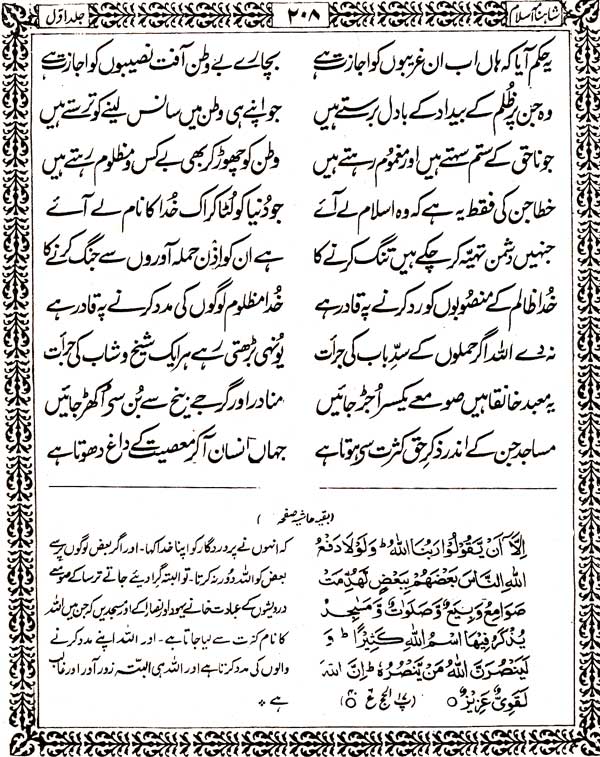 شاہنامۂ اسلام
۲۰۸
جلد اوّل
یہ حکم آیا کہ ہاں اب ان غریبوں کو اجازت ہے
بچارے بے وطن آفت نصیبوں کو اجازت ہے
وہ جن پر ظُلم کے بیداد کے بادل برستے ہیں
جو اپنے ہی وطن میں سانس لینے کو ترستے ہیں
جو ناحق کے ستم سہتے ہیں اور مغموم رہتے ہیں
وطن کو چھوڑ کر بھی بے کس و مظلوم رہتے ہیں
خطا جن کی فقط یہ ہے کہ وہ اسلام لے آئے
جو دُنیا کو لُٹا کر اک خُدا کا نام لے آئے
جنہیں دشمن تہیّہ کر چکے ہیں تنگ کرنے کا
ہے ان کو اِذن حملہ آوروں سے جنگ کرنے کا
خُدا ظالم کے منصُوبوں کو رد کرنے پہ قادر ہے
خُدا مظلوم لوگوں کی مدد کرنے پہ قادر ہے
نہ دے اللہ اگر حملوں کے سدِّ باب کی جرأت
یُونہی بڑھتی رہے ہر ایک شیخ و شاب کی جرأت
یہ معبد خانقاہیں صومعے یکسر اُجڑ جائیں
منادر اور گرجے بیخ سے بُن سے اُکھڑ جائیں
مساجد جن کے اندر ذکرِ حق کثرت سے ہوتا ہے
جہاں انسان آکر معصیت کے داغ دھوتا ہے
(بقیہ حاشیہ صفحہ )
اِلَّآ اَنْ يَّقُوْلُوْا رَبُّنَا اللّٰهُ ؕ وَلَوْلَا دَفْعُ
اللّٰهِ النَّاسَ بَعْضَهُمْ بِبَعْضٍ لَّهُدِّمَتْ
صَوَامِعُ وَبِيَعٌ وَّصَلَوٰتٌ وَّ مَسٰجِدُ
يُذْكَرُ فِيْهَا اسْمُ اللّٰهِ كَثِيْرًا ؕ وَ
لَيَنْصُرَنَّ اللّٰهُ مَنْ يَّنْصُرُهٗ ؕ اِنَّ اللّٰهَ
لَقَوِيٌّ عَزِيْزٌ ○ (پ۱۷ الحج ع )
کہ انہوں نے پروردگار کو اپنا خدا کہا۔ اور اگر بعض لوگوں سے
بعض کو اللہ دُور نہ کرتا۔ تو البتہ گرا دیئے جاتے ترسا کے صومعے
درویشوں کے عبادت خانے یہود اور نصاریٰ کے اور مسجدیں کہ جن میں اللہ
کا نام کثرت سے لیا جاتا ہے۔ اور اللہ اپنے مدد کرنے
والوں کی مدد کرتا ہے اور اللہ ہی البتہ زور آور اور غالب
ہے ٭